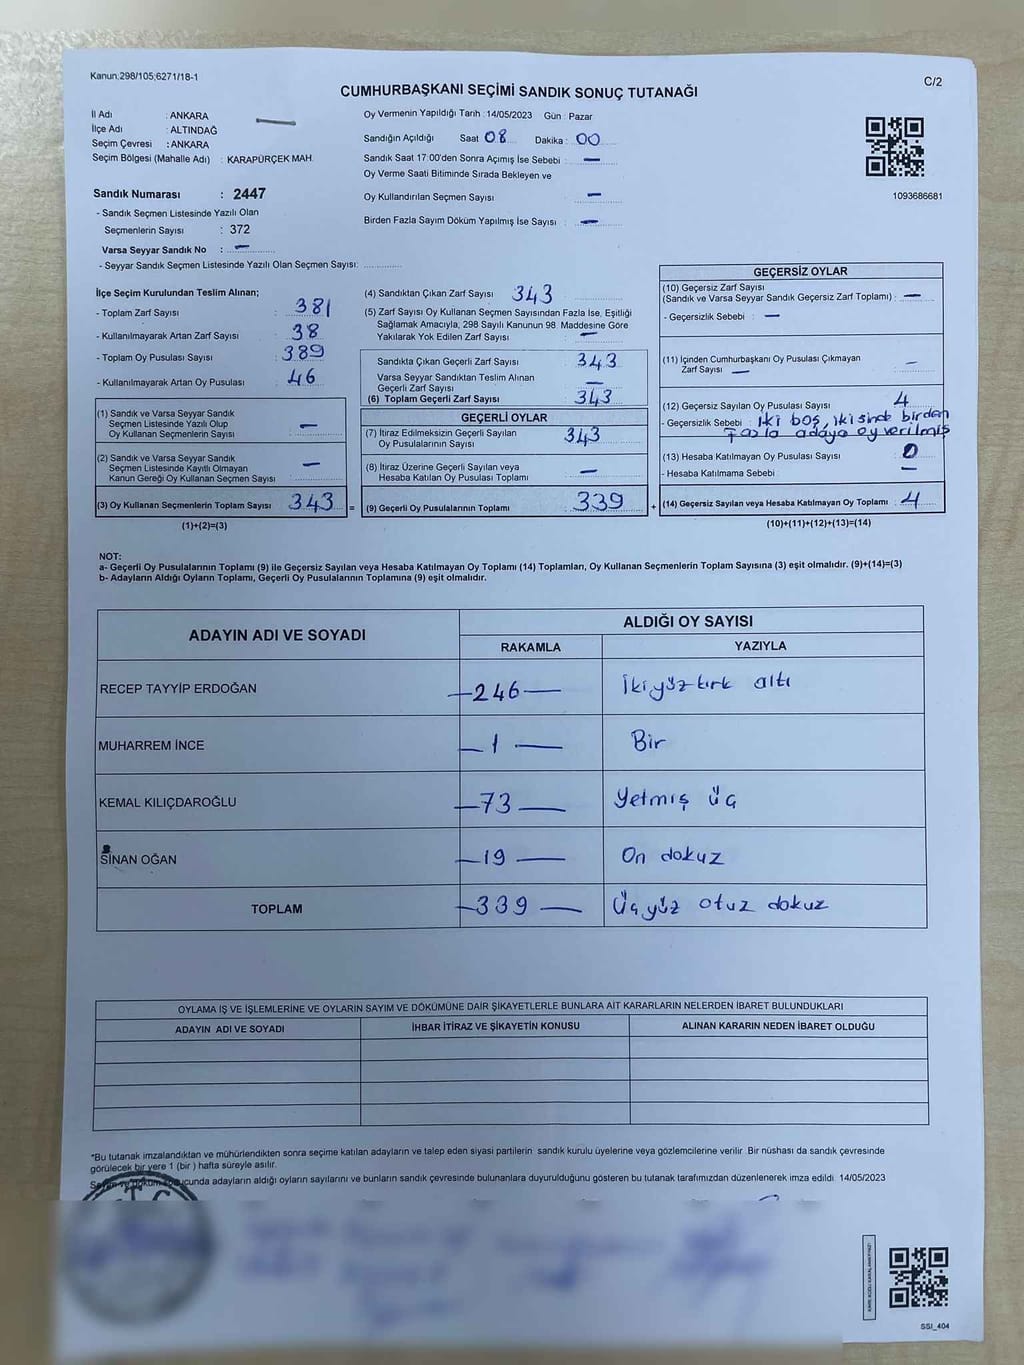 Kanun:298/105;6271/18-1
C/2
CUMHURBAŞKANI SEÇİMİ SANDIK SONUÇ TUTANAĞI
İl Adı : ANKARA
İlçe Adı : ALTINDAĞ
Seçim Çevresi : ANKARA
Seçim Bölgesi (Mahalle Adı) : KARAPÜRÇEK MAH.
Sandık Numarası : 2447
- Sandık Seçmen Listesinde Yazılı Olan
Seçmenlerin Sayısı : 372
Varsa Seyyar Sandık No : —
- Seyyar Sandık Seçmen Listesinde Yazılı Olan Seçmen Sayısı:
Oy Vermenin Yapıldığı Tarih :14/05/2023 Gün : Pazar
Sandığın Açıldığı Saat 08 Dakika : 00
Sandık Saat 17:00'den Sonra Açımış İse Sebebi : —
Oy Verme Saati Bitiminde Sırada Bekleyen ve
Oy Kullandırılan Seçmen Sayısı : —
Birden Fazla Sayım Döküm Yapılmış İse Sayısı : —
1093686681
İlçe Seçim Kurulundan Teslim Alınan;
- Toplam Zarf Sayısı : 381
- Kullanılmayarak Artan Zarf Sayısı : 38
- Toplam Oy Pusulası Sayısı : 389
- Kullanılmayarak Artan Oy Pusulası : 46
(1) Sandık ve Varsa Seyyar Sandık
Seçmen Listesinde Yazılı Olup
Oy Kullanan Seçmenlerin Sayısı : —
(2) Sandık ve Varsa Seyyar Sandık
Seçmen Listesinde Kayıtlı Olmayan
Kanun Gereği Oy Kullanan Seçmen Sayısı : —
(3) Oy Kullanan Seçmenlerin Toplam Sayısı : 343 =
(1)+(2)=(3)
(4) Sandıktan Çıkan Zarf Sayısı : 343
(5) Zarf Sayısı Oy Kullanan Seçmen Sayısından Fazla İse, Eşitliği
Sağlamak Amacıyla, 298 Sayılı Kanunun 98. Maddesine Göre
Yakılarak Yok Edilen Zarf Sayısı : —
Sandıkta Çıkan Geçerli Zarf Sayısı : 343
Varsa Seyyar Sandıktan Teslim Alınan
Geçerli Zarf Sayısı : —
(6) Toplam Geçerli Zarf Sayısı : 343
GEÇERLİ OYLAR
(7) İtiraz Edilmeksizin Geçerli Sayılan
Oy Pusulalarının Sayısı : 343
(8) İtiraz Üzerine Geçerli Sayılan veya
Hesaba Katılan Oy Pusulası Toplamı : —
(9) Geçerli Oy Pusulalarının Toplamı : 339 +
GEÇERSİZ OYLAR
(10) Geçersiz Zarf Sayısı
(Sandık ve Varsa Seyyar Sandık Geçersiz Zarf Toplamı) : —
- Geçersizlik Sebebi : —
(11) İçinden Cumhurbaşkanı Oy Pusulası Çıkmayan
Zarf Sayısı : —
(12) Geçersiz Sayılan Oy Pusulası Sayısı : 4
- Geçersizlik Sebebi : İki boş, ikisinde birden
fazla adaya oy verilmiş
(13) Hesaba Katılmayan Oy Pusulası Sayısı : 0
- Hesaba Katılmama Sebebi : —
(14) Geçersiz Sayılan veya Hesaba Katılmayan Oy Toplamı : 4
(10)+(11)+(12)+(13)=(14)
NOT:
a- Geçerli Oy Pusulalarının Toplamı (9) ile Geçersiz Sayılan veya Hesaba Katılmayan Oy Toplamı (14) Toplamları, Oy Kullanan Seçmenlerin Toplam Sayısına (3) eşit olmalıdır. (9)+(14)=(3)
b- Adayların Aldığı Oyların Toplamı, Geçerli Oy Pusulalarının Toplamına (9) eşit olmalıdır.
ADAYIN ADI VE SOYADI ALDIĞI OY SAYISI
RAKAMLA YAZIYLA
RECEP TAYYİP ERDOĞAN —246— İkiyüzkırk altı
MUHARREM İNCE —1— Bir
KEMAL KILIÇDAROĞLU —73— Yetmiş üç
SİNAN OĞAN —19— On dokuz
TOPLAM —339— Üçyüz otuz dokuz
OYLAMA İŞ VE İŞLEMLERİNE VE OYLARIN SAYIM VE DÖKÜMÜNE DAİR ŞİKAYETLERLE BUNLARA AİT KARARLARIN NELERDEN İBARET BULUNDUKLARI
ADAYIN ADI VE SOYADI İHBAR İTİRAZ VE ŞİKAYETİN KONUSU ALINAN KARARIN NEDEN İBARET OLDUĞU
*Bu tutanak imzalandıktan ve mühürlendikten sonra seçime katılan adayların ve talep eden siyasi partilerin sandık kurulu üyelerine veya gözlemcilerine verilir. Bir nüshası da sandık çevresinde
görülecek bir yere 1 (bir) hafta süreyle asılır.
Sayım ve döküm sonucunda adayların aldığı oyların sayılarını ve bunların sandık çevresinde bulunanlara duyurulduğunu gösteren bu tutanak tarafımızdan düzenlenerek imza edildi. 14/05/2023
T.C.
SSI_404